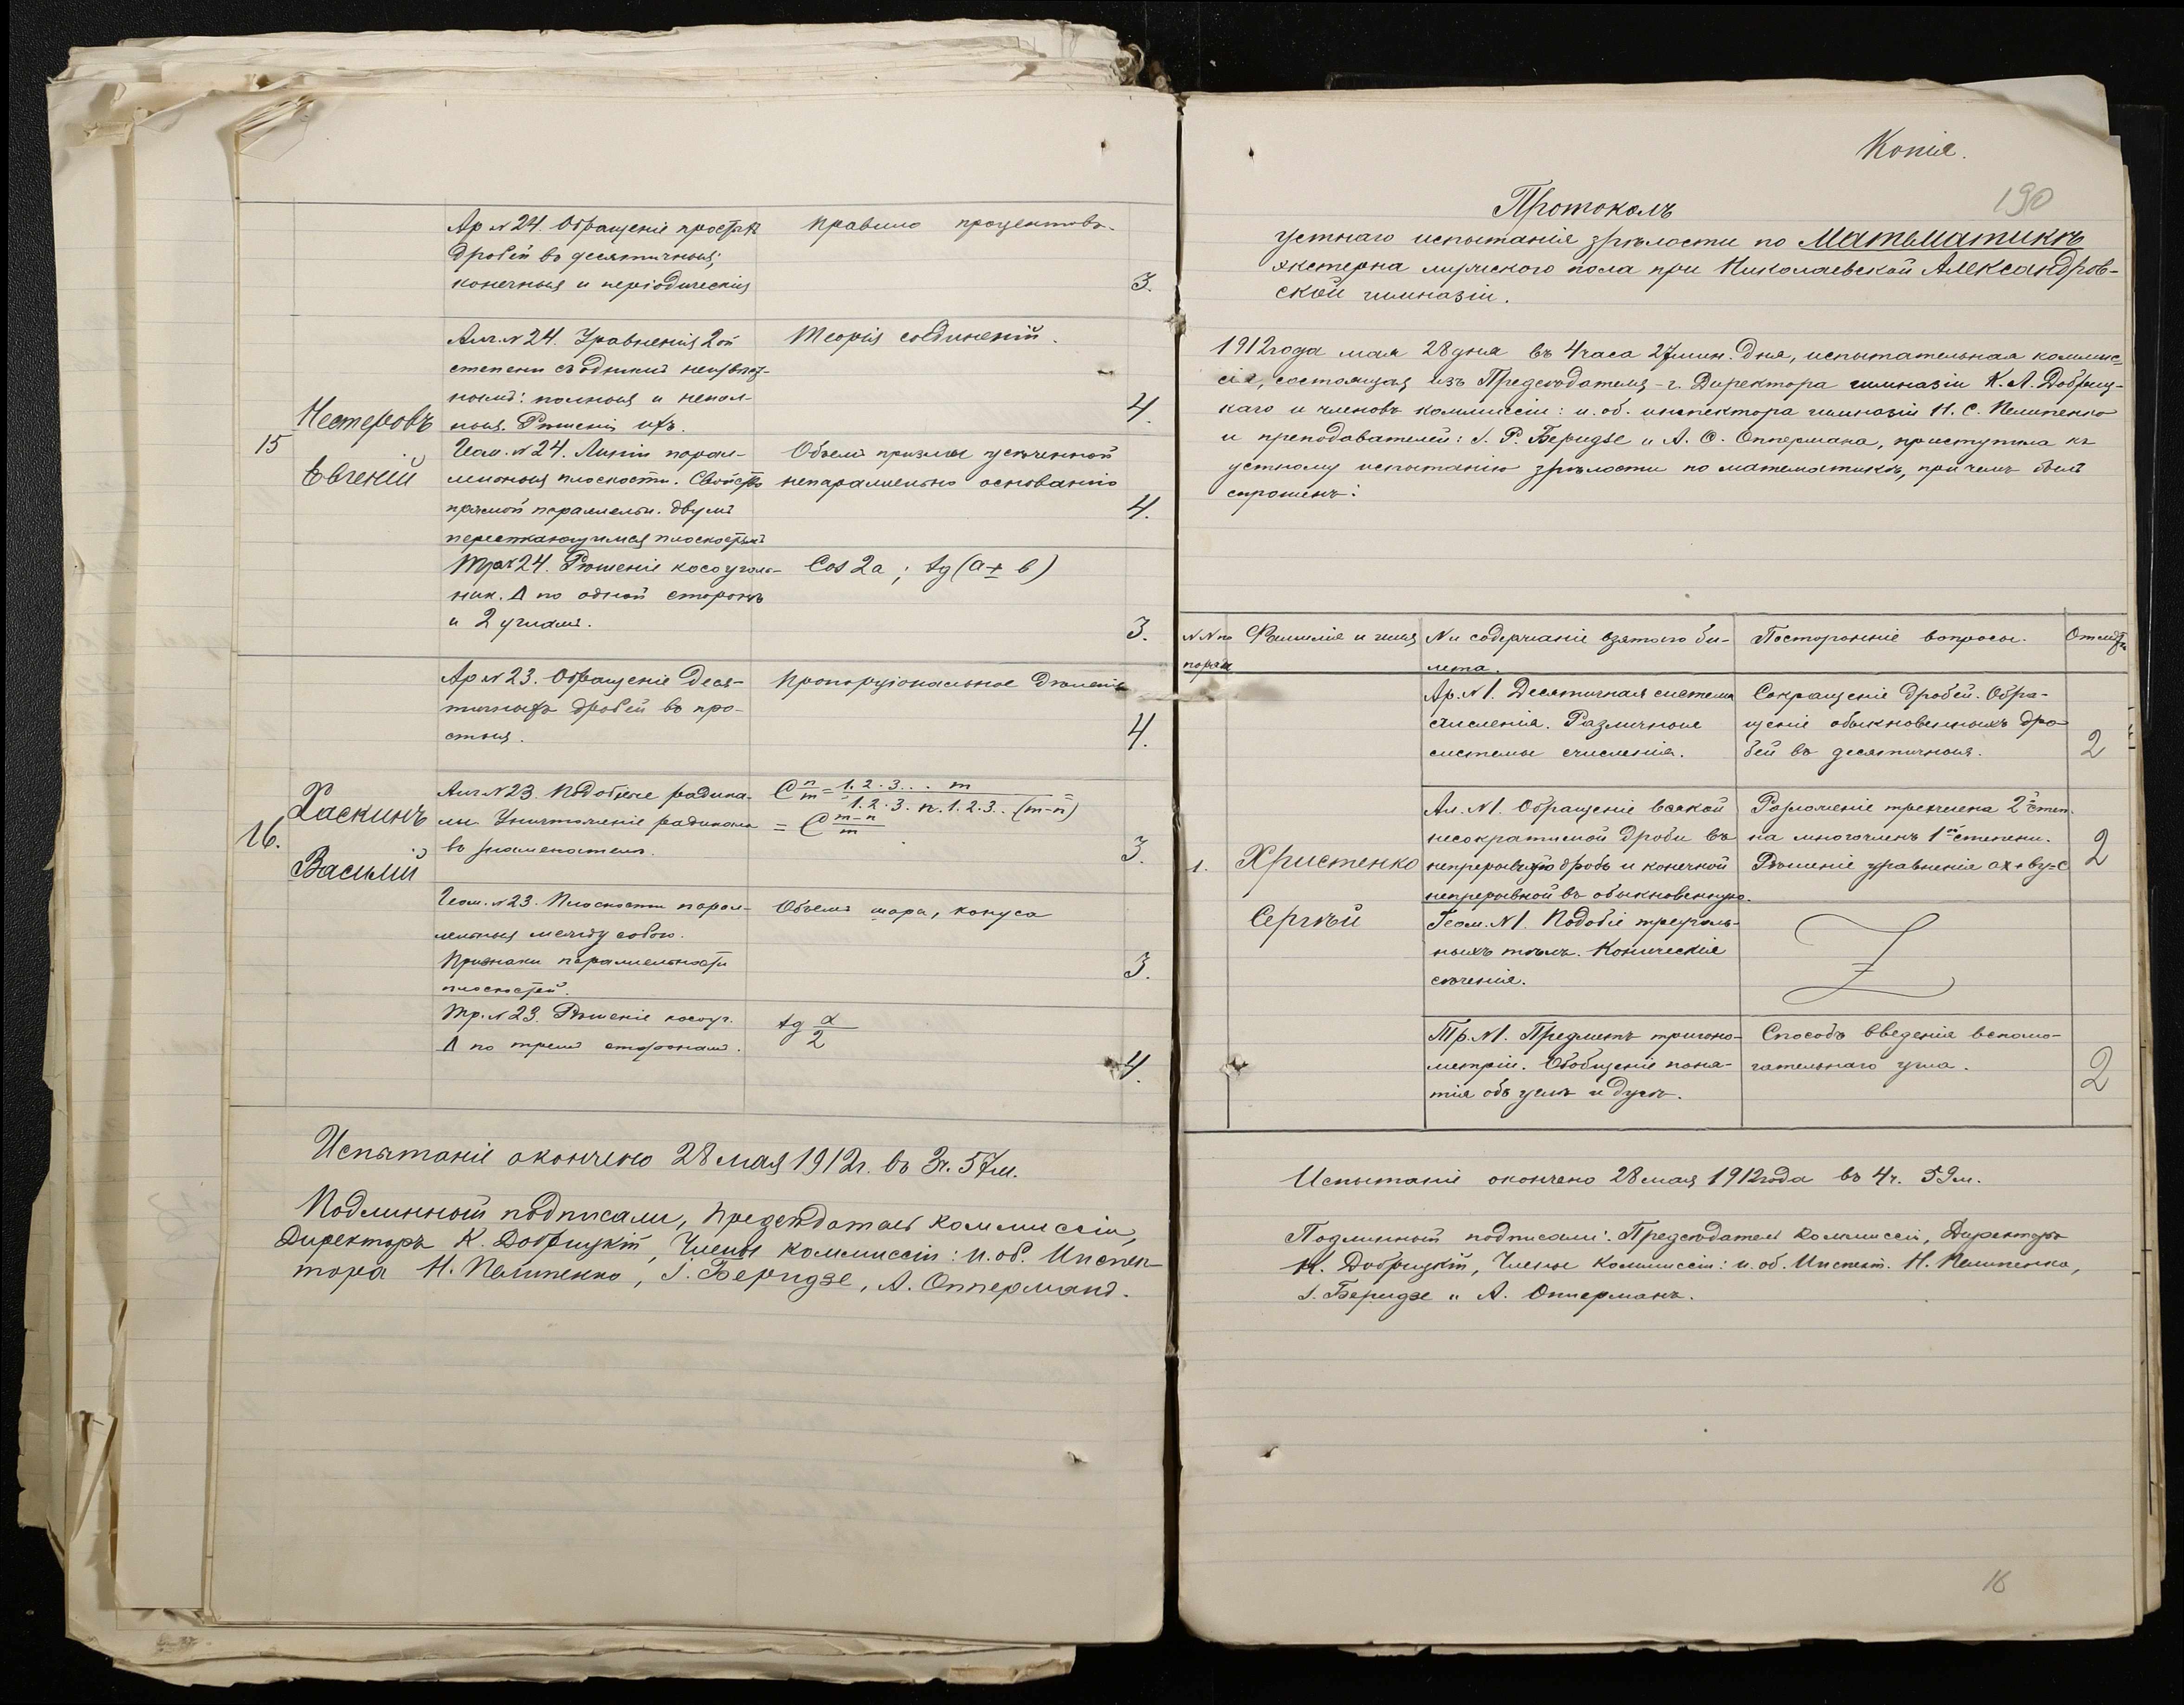 Ар № 24. Обращеніе простых
дробей въ десятичныя;
конечныя и періодическія
Правило процентовъ.
3.
Алг. № 24. Уравненія 2ой
степени съ однимъ неизвѣст-
нымъ: полныя и непол-
ныя. Рѣшеніе ихъ.
Теорія соединеній.
4.
15
Нестеровъ
Евгеній
Геом. № 24. Линіи парал-
лельныя плоскости. Свойство
прямой параллельн. двумъ
пересѣкающимся плоскостямъ
Объемъ призмы усѣченной
непараллельно основанію
4.
Триг 24. Рѣшеніе косоуголь-
ник. Δ по одной сторонѣ
и 2 угламъ.
Cos 2a ; tg (a ± b)
3.
Ар № 23. Обращеніе деся-
тичныхъ дробей въ про-
стыя.
Пропорціональное дѣленіе
4.
16.
Хаскинъ
Василій
Алг № 23. Подобные радика-
лы. Уничтоженіе радикала
въ знаменателѣ.
C n/m = 1.2.3... m / 1.2.3. n. 1.2.3.. (m-n)
= C m-n/m
3.
Геом. № 23. Плоскости парал-
лельныя между собою.
Признаки параллельности
плоскостей.
Объемъ шара, конуса
3.
Тр. № 23. Рѣшеніе косоуг.
Δ по тремъ сторонамъ.
tg α/2
4.
Испытаніе окончено 28 мая 1912 г. въ 3 ч. 57 м.
Подлинный подписали, Предсѣдатель коммиссіи,
Директоръ К. Добрицкій, Члены коммиссіи: и. об. Инспек-
тора Н. Пелипенко, І. Беридзе, А. Опперманъ.
Копія.
190
Протоколъ
устнаго испытанія зрѣлости по Математикѣ
экстерна мужского пола при Николаевской Александров-
ской гимназіи.
1912 года мая 28 дня въ 4 часа 27 мин. дня, испытательная коммис-
сія, состоящая изъ Предсѣдателя - г. Директора гимназіи К. А. Добриц-
каго и членовъ коммиссіи: и. об. инспектора гимназіи Н. С. Пелипенко
и преподавателей: І. Р. Беридзе и А. О. Оппермана, приступила къ
устному испытанію зрѣлости по математикѣ, при чемъ былъ
спрошенъ:
№№ по
порядк
Фамилія и имя
№ и содержаніе взятаго би-
лета.
Посторонніе вопросы.
Отмѣтк
Ар. № 1. Десятичная система
счисленія. Различныя
системы счисленія.
Сокращеніе дробей. Обра-
щеніе обыкновенныхъ дро-
бей въ десятичныя.
2
1.
Христенко
Сергѣй
Ал. № 1. Обращеніе всякой
несократимой дроби въ
непрерывную дробь и конечной
непрерывной въ обыкновенную.
Разложеніе трехчлена 2ой степ.
на многочленъ 1ой степени.
Рѣшеніе уравненія ax+by=c
2
Геом. № 1. Подобіе треуголь-
ныхъ тѣлъ. Коническіе
сѣченія.
Тр. № 1. Предметъ тригоно-
метріи. Обобщеніе поня-
тія объ углѣ и дугѣ.
Способъ введенія вспомо-
гательнаго угла.
2
Испытаніе окончено 28 мая 1912 года въ 4 ч. 59 м.
Подлинный подписали: Предсѣдатель Коммиссіи, Директоръ
К. Добрицкій, Члены Коммиссіи: и. об. Инспект. Н. Пелипенко,
І. Беридзе и А. Опперманъ.
16